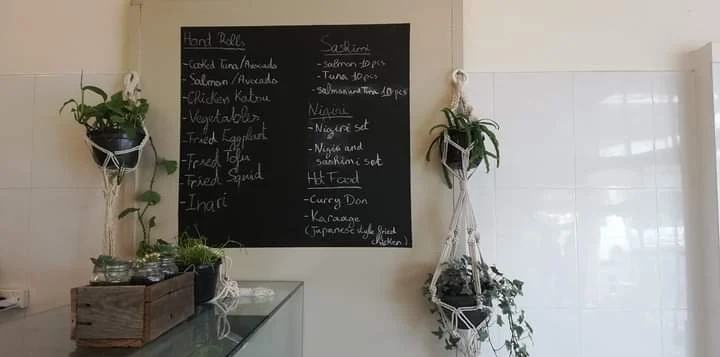 Hand Rolls
- Cooked Tuna/Avocado
- Salmon/Avocado
- Chicken Katsu
- Vegetables
- Fried Eggplant
- Fried Tofu
- Fried Squid
- Inari
Sashimi
- Salmon 10pcs
- Tuna 10pcs
- Salmon and Tuna 10pcs
Nigiri
- Nigiri set
- Nigiri and
sashimi set
Hot Food
- Curry Don
- Karaage
(Japanese style fried
chicken)